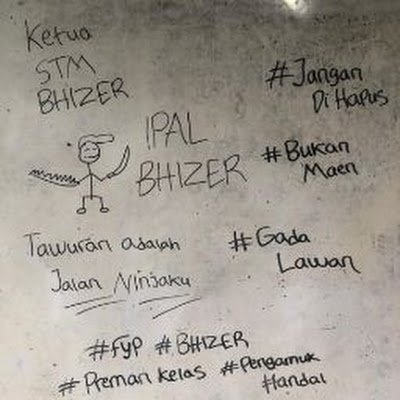 Ketua
STM
BHIZER
#Jangan
Di Hapus
IPAL
BHIZER
#Bukan
Maen
Tawuran adalah
Jalan Ninjaku
#Gada
Lawan
#fyp #BHIZER
#Preman Kelas #Pengamuk
Handal